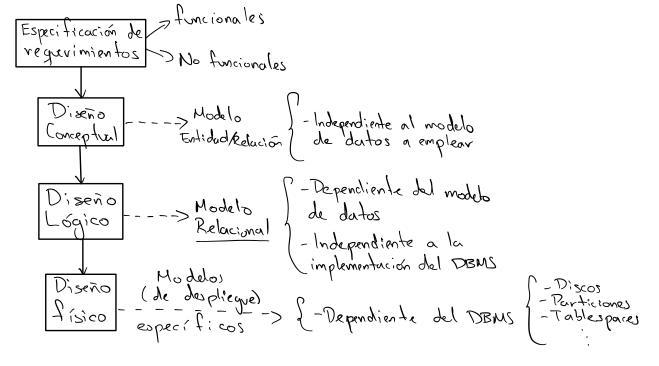 Especificación de
requerimientos
funcionales
No funcionales
Diseño
Conceptual
Modelo
Entidad/Relación
-Independiente al modelo
de datos a emplear
Diseño
Lógico
Modelo
Relacional
-Dependiente del modelo
de datos
-Independiente a la
implementación del DBMS
Diseño
físico
Modelos
(de despliegue)
específicos
-Dependiente del DBMS
-Discos
-Particiones
-Tablespaces